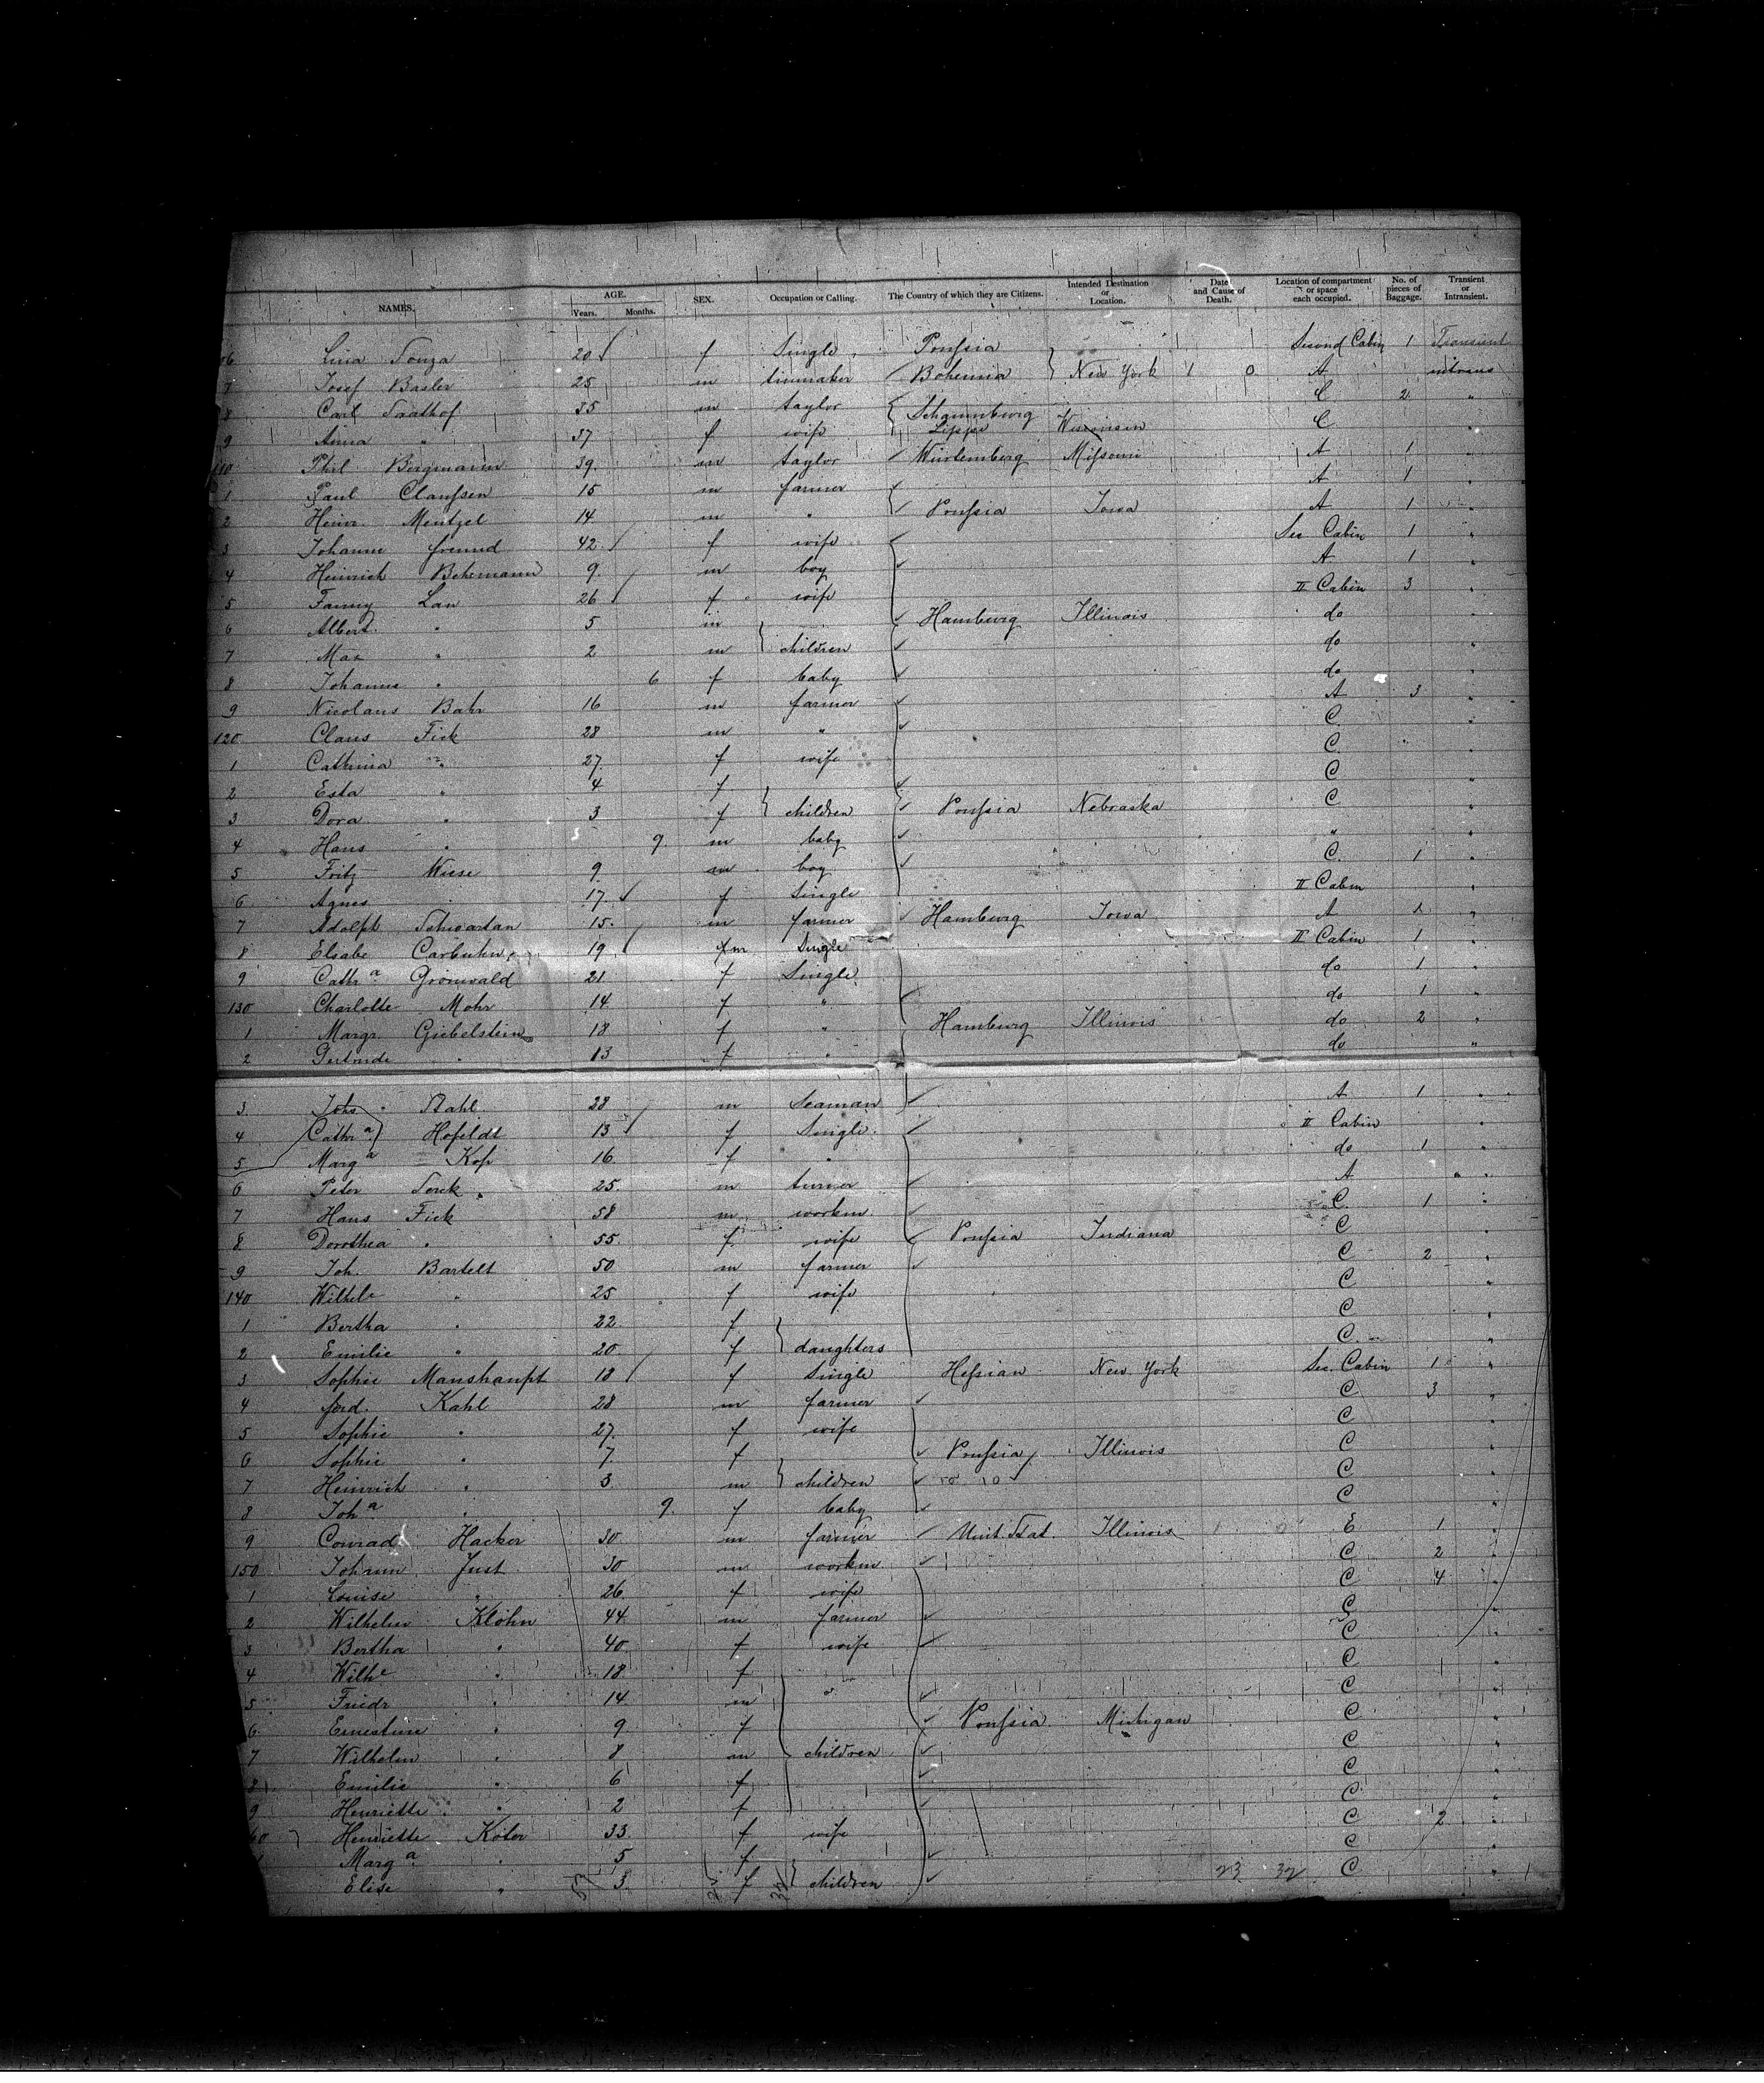 NAMES. AGE. Years. Months. SEX. Occupation or Calling. The Country of which they are Citizens. Intended Destination or Location. Date and Cause of Death. Location of compartment or space each occupied. No. of pieces of Baggage. Transient or Intransient.
6 20 f Single Preußia Second Cabin 1 Transient
7 Josef Basler 25 m Bohemia New York 1 0 A intrans
8 Carl Saathof 35 m taylor Schaumburg C 2 "
9 Anna " 37 f wife Lippe Wisconsin C "
110 Phil Bergmann 39 m taylor Würtemberg Mißouri A 1 "
1 Paul Claußen 15 m farmer A 1 "
2 Heinr. Mentzel 14 m " Preußia Iowa A 1 "
3 Johanne freund 42 f wife Sec Cabin 1 "
4 Heinrich Behrmann 9 m boy A 1 "
5 Fanny Lau 26 f wife II Cabin 3 "
6 Albert " 5 m Hamburg Illinois do "
7 Max " 2 m children do "
8 Johanne " 6 f baby do "
9 Nicolaus Bahr 16 m farmer A 3 "
120 Claus Fick 28 m " C "
1 Cathrina " 27 f wife C "
2 Esta " 4 f C "
3 Dora " 3 f children Preußia Nebraska C "
4 Hans " 9 m baby " "
5 Fritz Wiese 9 m boy C 1 "
6 Agnes 17 f Single II Cabin "
7 Adolph Schwartan 15 m farmer Hamburg Iowa A 1 "
8 Elsabe 19 f Single II Cabin 1 "
9 Cathra Grönwald 21 f Single do 1 "
130 Charlotte Mohr 14 f " do 1 "
1 Margr. Giebelstein 18 f " Hamburg Illinois do 2 "
2 Gertrude " 13 f " do "
3 Johs Stahl 28 m Seaman A 1 "
4 Cathra Hofeldt 13 f Single II Cabin "
5 Marga Kop 16 f " do 1 "
6 Peter 25 m turner A "
7 Hans Fick 58 m workm. C 1 "
8 Dorothea " 55 f wife Preußia Indiana C "
9 Joh. Bartelt 50 m farmer C 2 "
140 Wilhele " 25 f wife C "
1 Bertha " 22 f C "
2 Emilie " 20 f daughters C "
3 Sophie Manshaupt 18 f Single Heßian New York Sec. Cabin 1 "
4 ferd. Kahl 28 m farmer C 3 "
5 Sophie " 27 f wife C "
6 Sophie " 7 f Preußia Illinois C "
7 Heinrich " 3 m children C "
8 Joha " 9 f baby C "
9 Conrad Hacker 30 m farmer Unit. Stat. Illinois E 1 "
150 Johann Just 30 m workm C 2 "
1 Louise " 26 f wife C 4 "
2 Wilhelm Klöhn 44 m farmer C "
3 Bertha " 40 f wife C "
4 Wilhe " 18 f " C "
5 Friedr " 14 m C "
6 Ernestine " 9 f Preußia Michigan C "
7 Wilhelm " 8 m children C "
8 Emilie " 6 f C "
9 Henriette " 2 f C "
60 Henriette Köter 33 f wife C 2 "
1 Marga " 5 f C "
Elise " 3 f children 23 32 C "